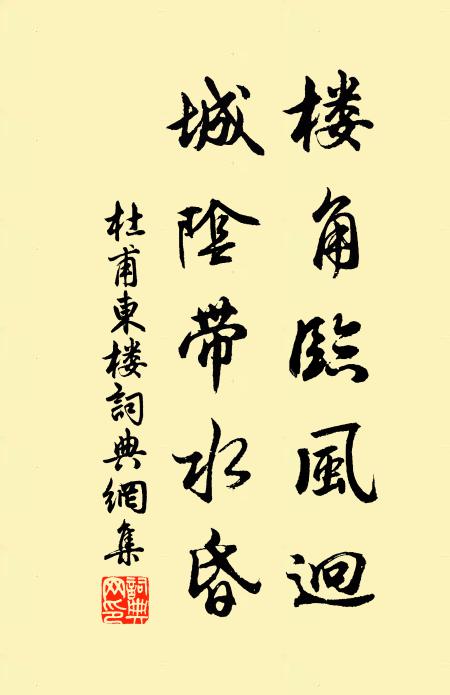 楼角臨風迥
城陰帶水昏
杜甫東楼詞典網集